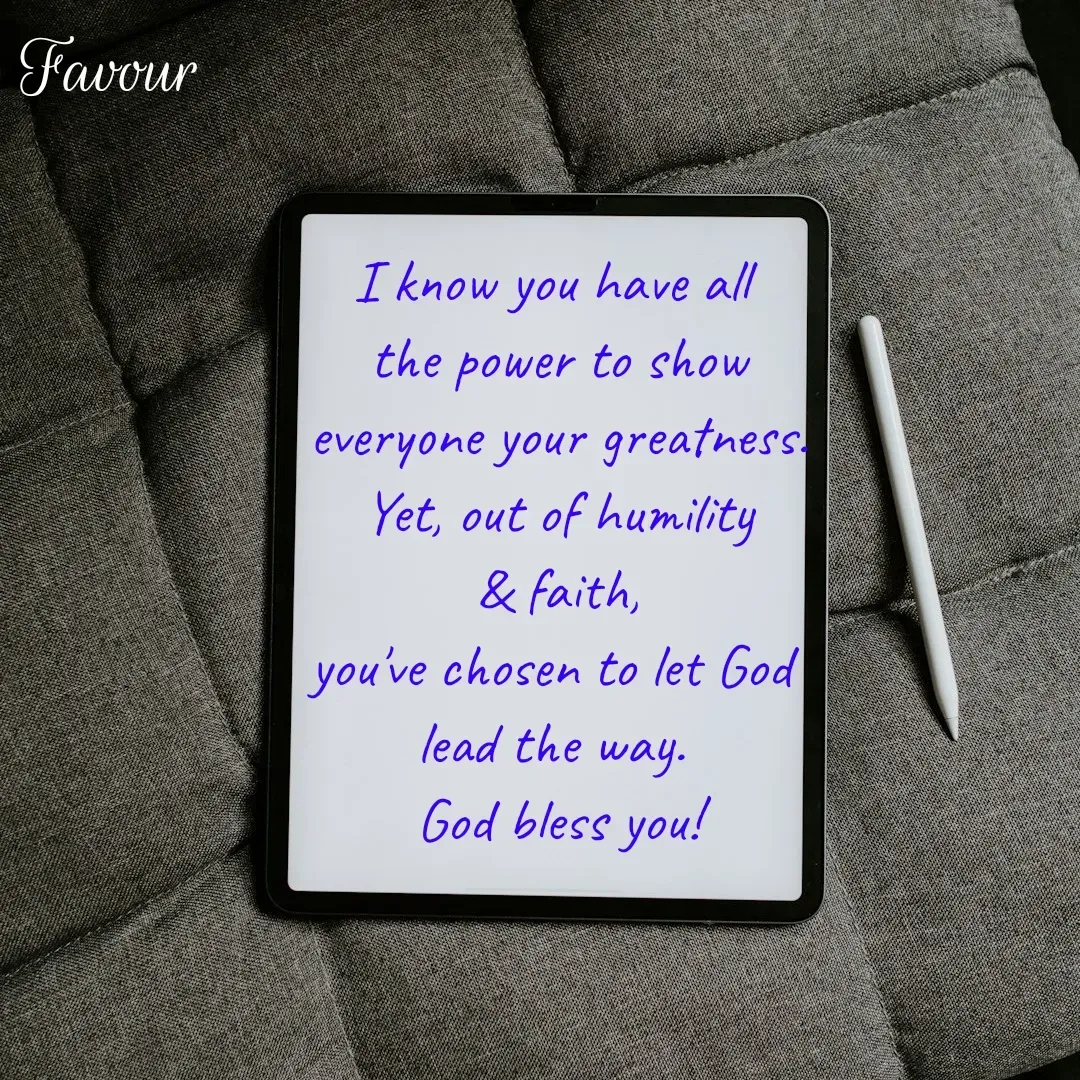 Favour
I know you have all
the power to show
everyone your greatness.
Yet, out of humility
& faith,
you've chosen to let God
lead the way.
God bless you!